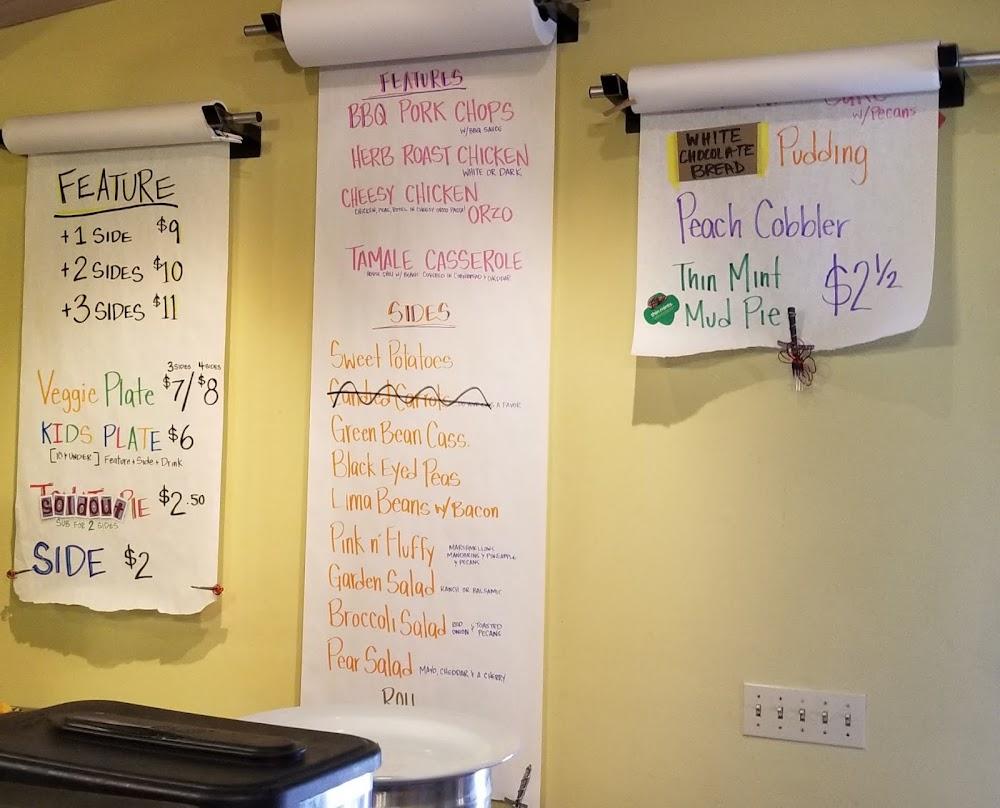 FEATURE
+1 SIDE $9
+2 SIDES $10
+3 SIDES $11
3 SIDES 4 SIDES
Veggie Plate $7/$8
KIDS PLATE $6
[10 & UNDER] Feature + Side + Drink
soldout PIE $2.50
SUB FOR 2 SIDES
SIDE $2
FEATURES
BBQ PORK CHOPS
W/ BBQ SAUCE
HERB ROAST CHICKEN
WHITE OR DARK
CHEESY CHICKEN
ORZO
TAMALE CASSEROLE
SIDES
Sweet Potatoes
Candied Carrots
Green Bean Cass.
Black Eyed Peas
Lima Beans w/ Bacon
Pink n' Fluffy MARSHMELLOWS
MANDARINS & PINEAPPLE
& PECANS
Garden Salad RANCH OR BALSAMIC
Broccoli Salad RED ONION & TOASTED PECANS
Pear Salad MAYO, CHEDDAR, & A CHERRY
Roll
w/Pecans
WHITE
CHOCOLATE
BREAD
Pudding
Peach Cobbler
Thin Mint
Mud Pie
$2 1/2